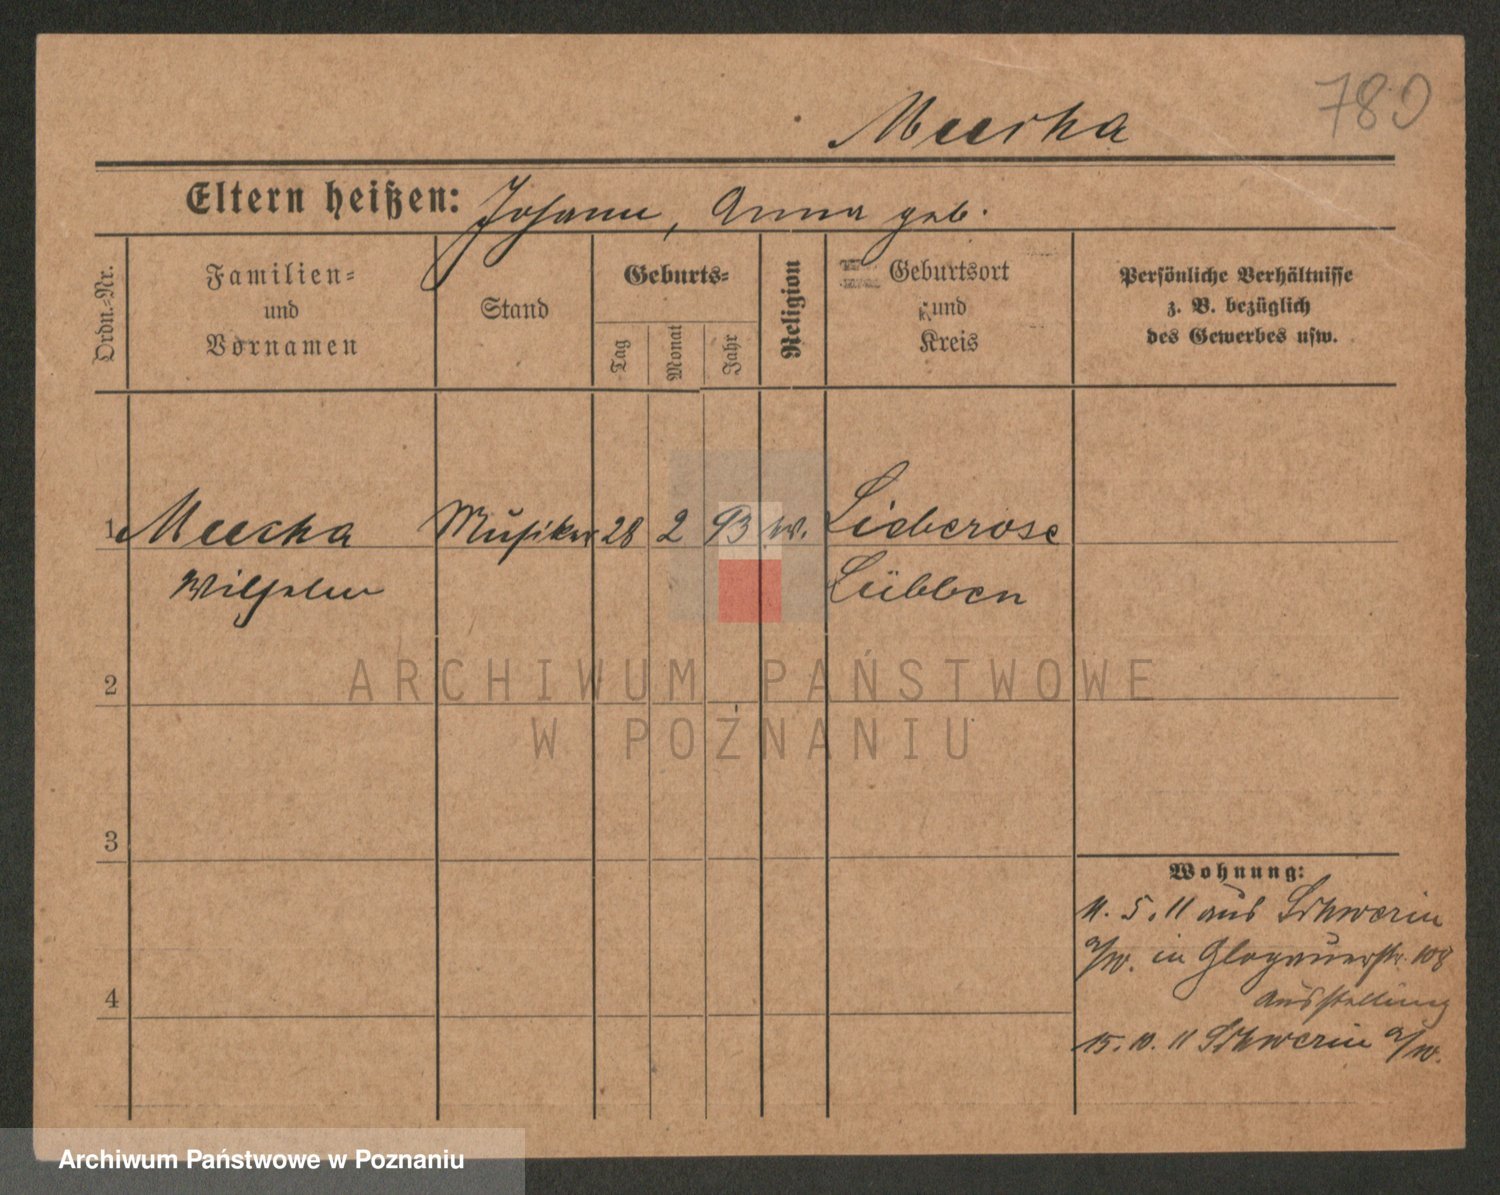 780
Meerka
Eltern heißen: Johann, Anna geb.
Ordn.-Nr.
Familien-
und
Vornamen
Stand
Geburts-
Tag
Monat
Jahr
Religion
Geburtsort
und
Kreis
Persönliche Verhältnisse
z. B. bezüglich
des Gewerbes usw.
1 Meerka Musiker 28 2 93 Lieberose
Wilhelm Lübben
2
3
4
Wohnung:
11. 5. 11 aus Schwerin
a/W. in Glogauerstr. 108
Ausstellung
15. 10. 11 Schwerin a/W.
ARCHIWUM PAŃSTWOWE
W POZNANIU
Archiwum Państwowe w Poznaniu